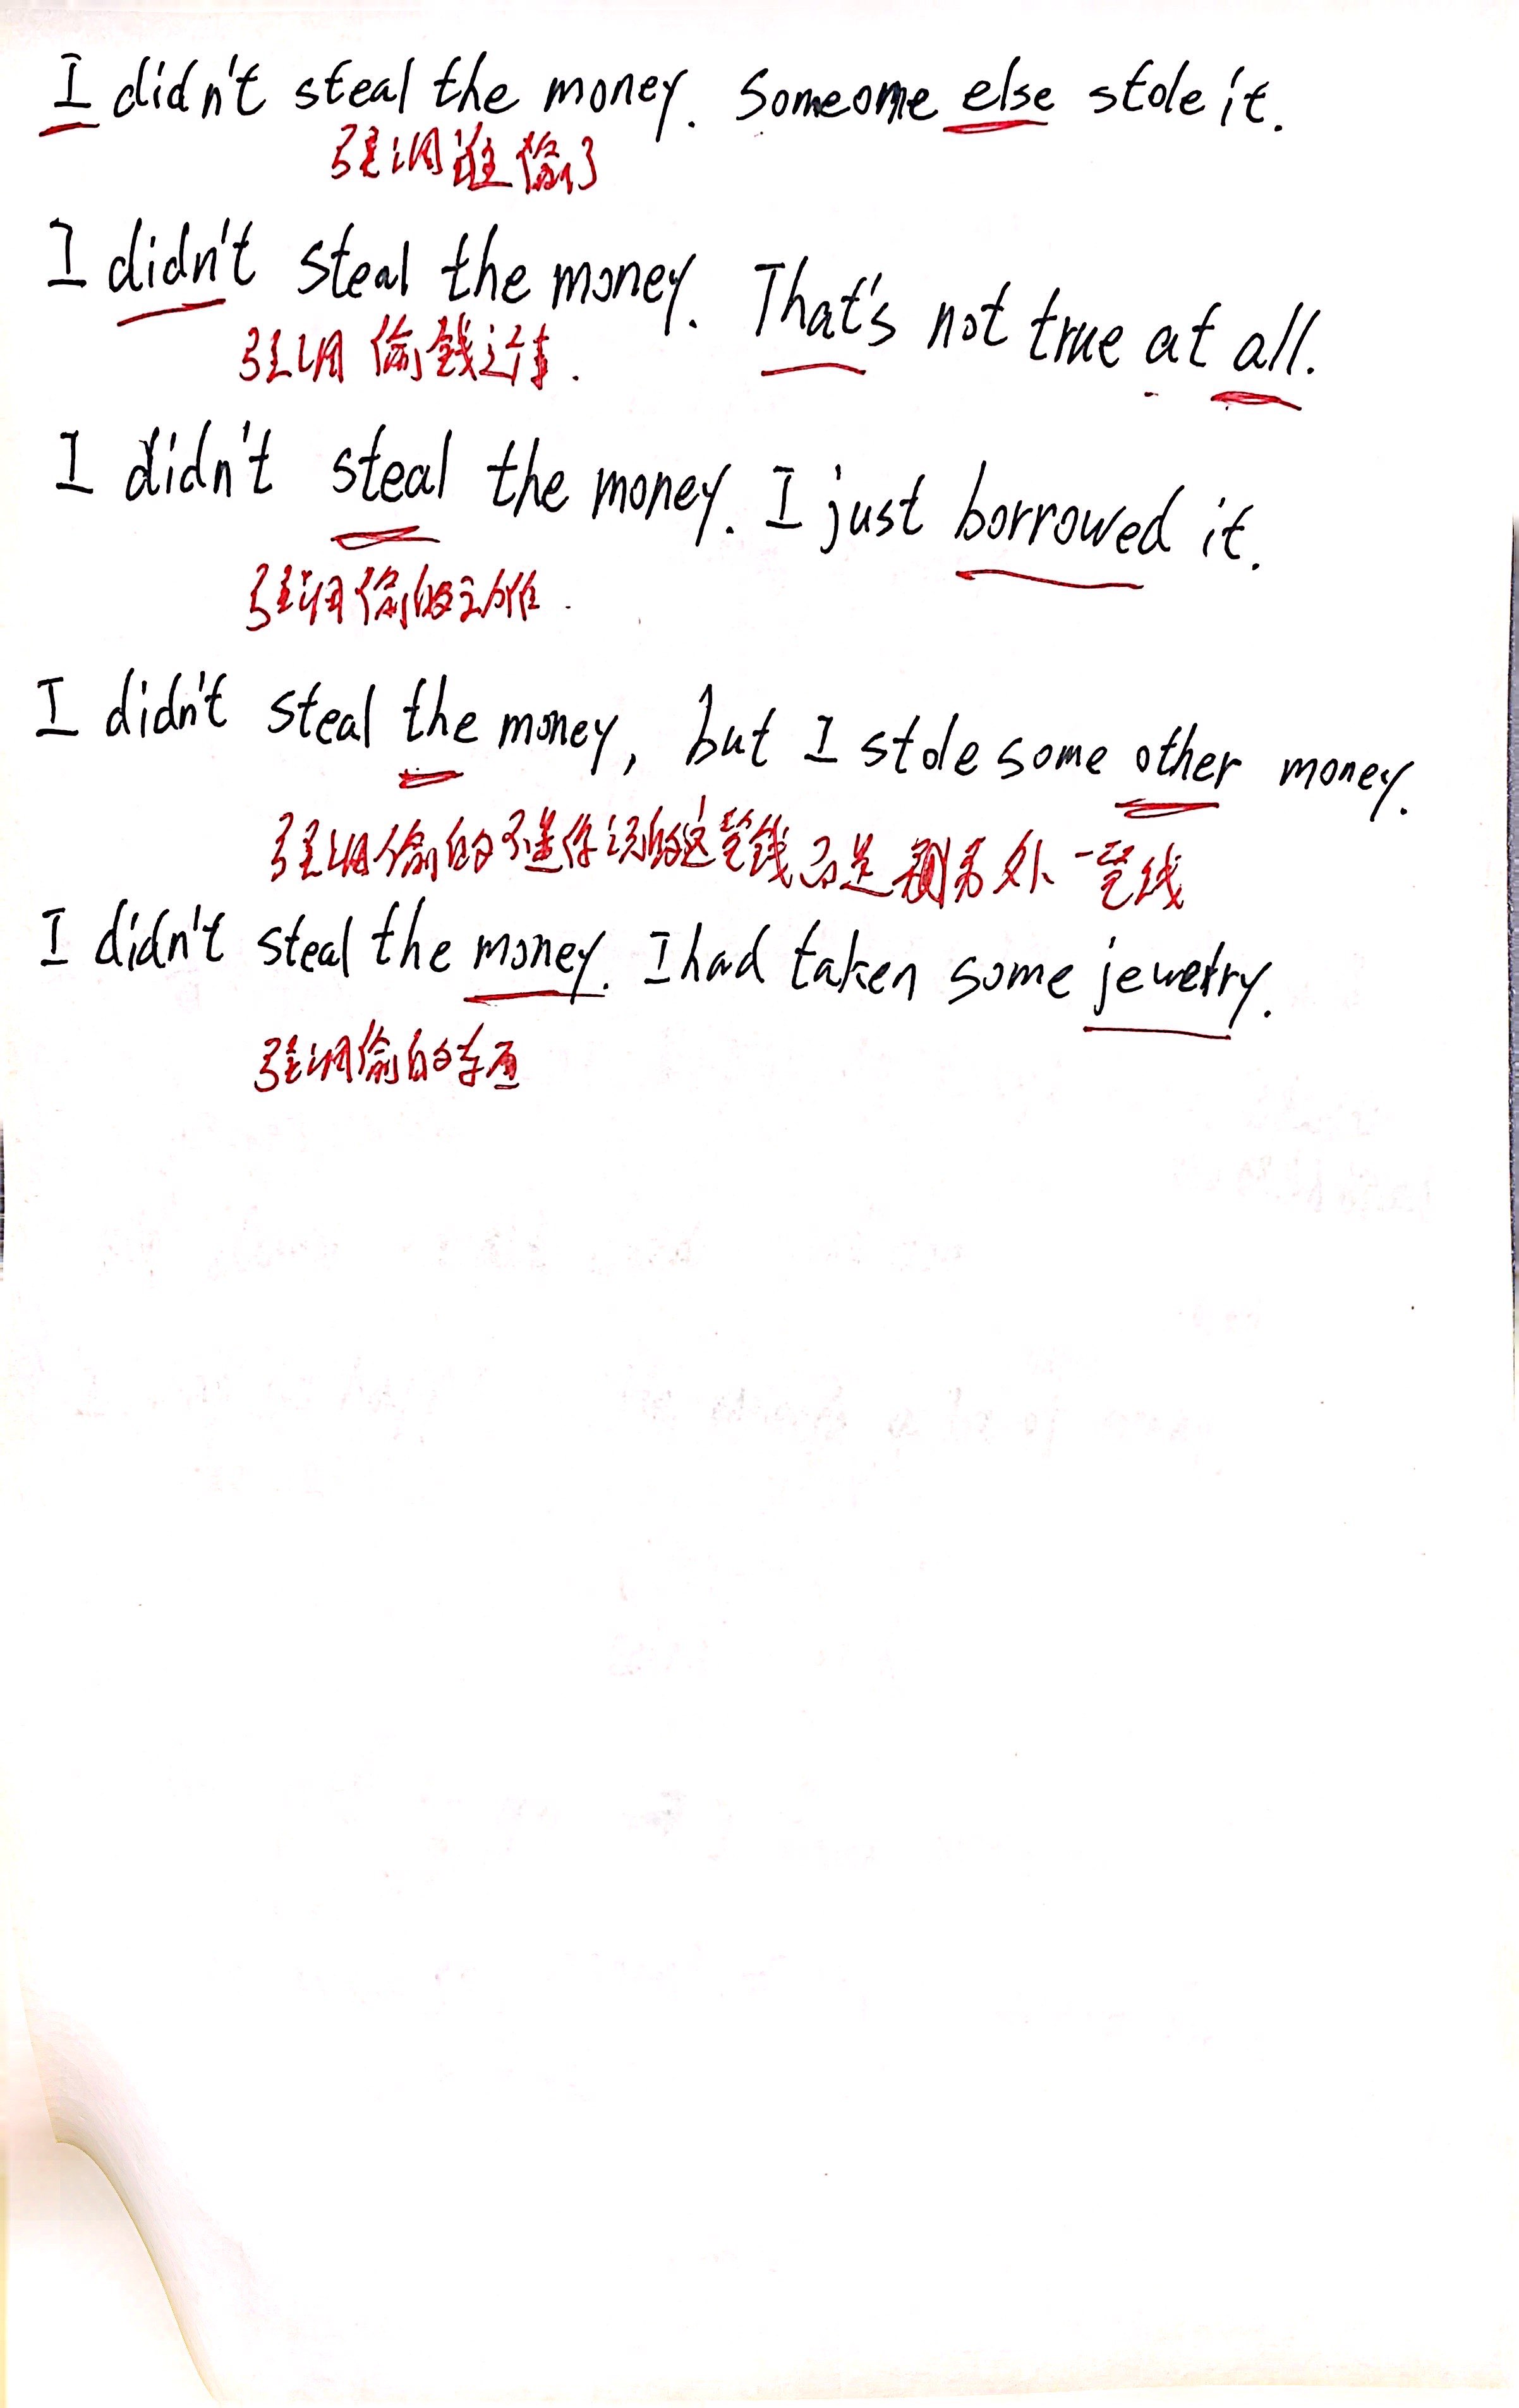 I didn't steal the money. Someome else stole it.
强调谁偷了
I didn't steal the money. That's not true at all.
强调偷钱这件事.
I didn't steal the money. I just borrowed it.
强调偷的动作.
I didn't steal the money, but I stole some other money.
强调偷的不是你说的这笔钱而是 另外一笔钱
I didn't steal the money. I had taken some jewelry.
强调偷的东西